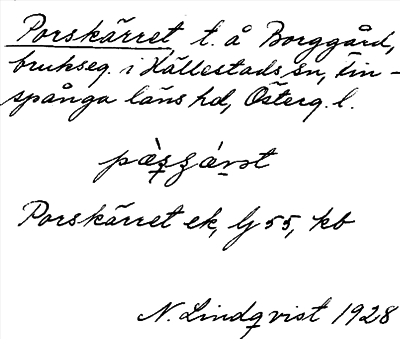 Porskärret, t. å Borggård,
brukseg. i Hällestads sn, Fin-
spånga läns hd, Österg. l.
Porskärret ek, lj 55, kb
N. Lindqvist 1928